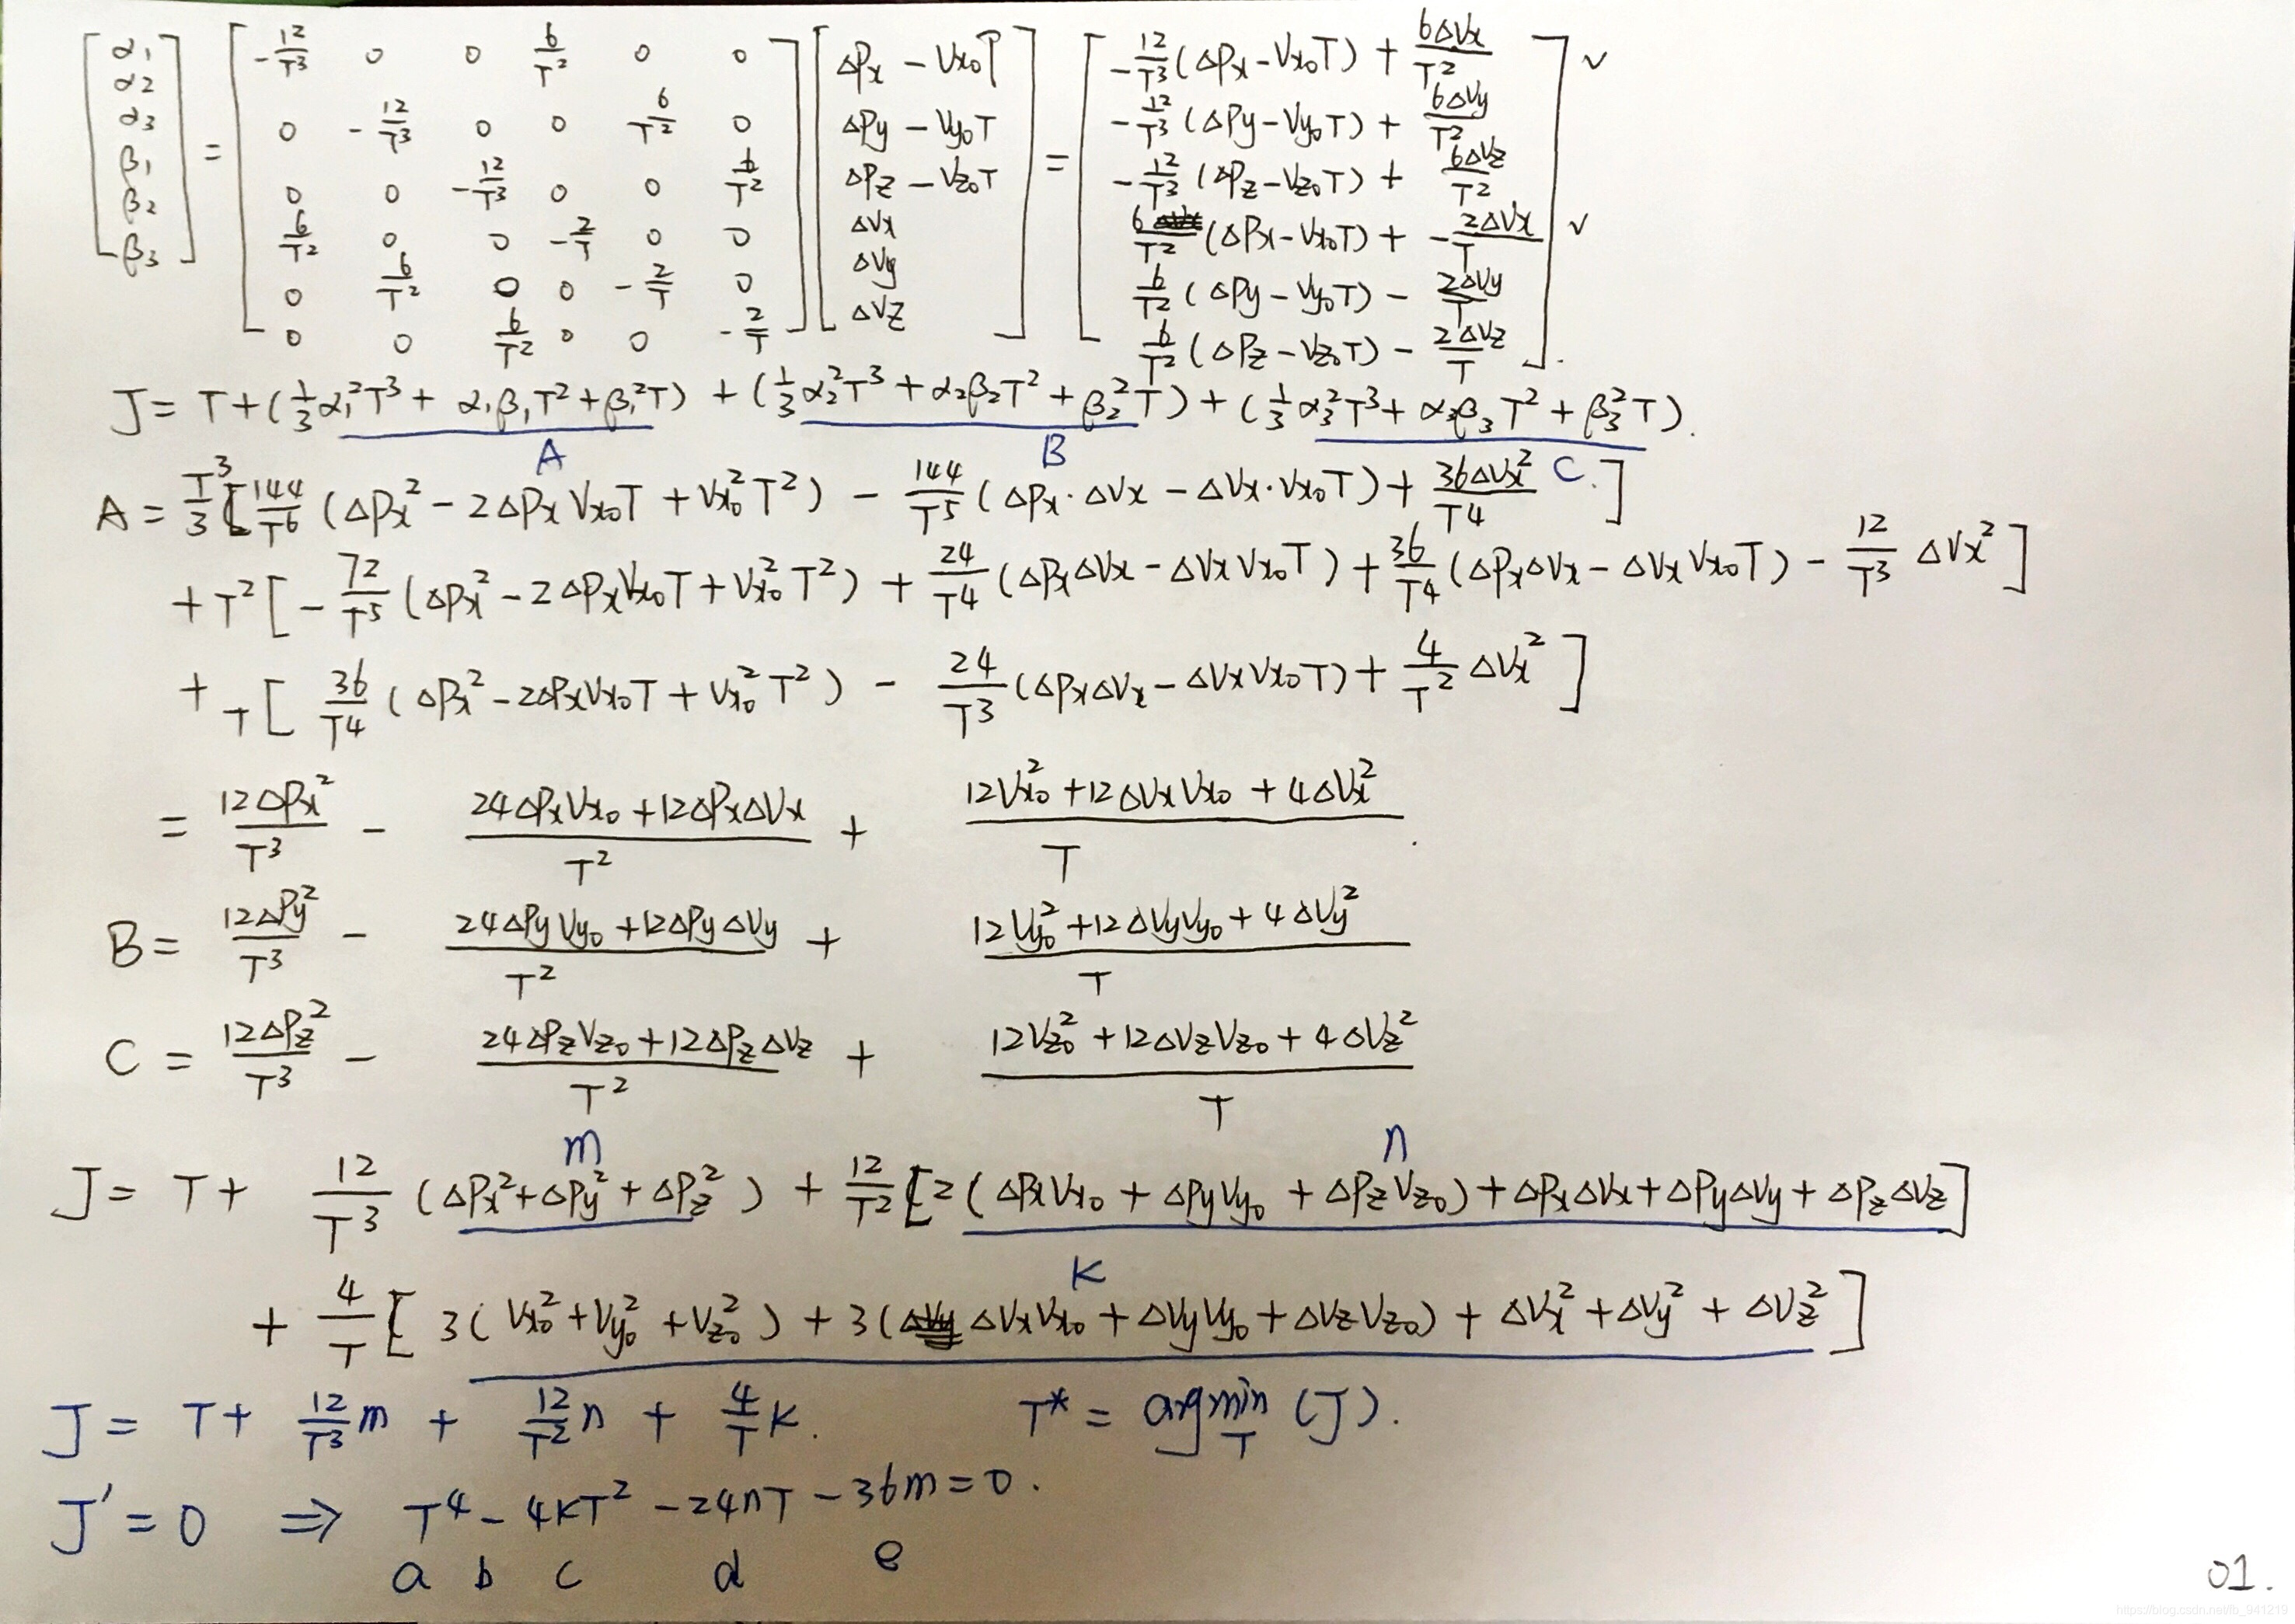 [α₁ α₂ α₃ β₁ β₂ β₃] = [-12/T³ 0 0 6/T² 0 0
0 -12/T³ 0 0 6/T² 0
0 0 -12/T³ 0 0 6/T²
6/T² 0 0 -2/T 0 0
0 6/T² 0 0 -2/T 0
0 0 6/T² 0 0 -2/T]
[ΔPx - Vx₀T
ΔPy - Vy₀T
ΔPz - Vz₀T
ΔVx
ΔVy
ΔVz]
= [-12/T³(ΔPx-Vx₀T) + 6ΔVx/T² √
-12/T³(ΔPy-Vy₀T) + 6ΔVy/T²
-12/T³(ΔPz-Vz₀T) + 6ΔVz/T²
6/T²(ΔPx-Vx₀T) + -2ΔVx/T √
6/T²(ΔPy-Vy₀T) - 2ΔVy/T
6/T²(ΔPz-Vz₀T) - 2ΔVz/T].
J = T+(1/3α₁²T³+ α₁β₁T²+β₁²T) + (1/3α₂²T³+α₂β₂T²+β₂²T) + (1/3α₃²T³+α₃β₃T²+β₃²T).
A B C.
A = T³/3[144/T⁶(ΔPx²-2ΔPxVx₀T+Vx₀²T²) - 144/T⁵(ΔPx·ΔVx-ΔVx·Vx₀T)+36ΔVx²/T⁴]
+T²[-72/T⁵(ΔPx²-2ΔPxVx₀T+Vx₀²T²)+24/T⁴(ΔPxΔVx-ΔVxVx₀T)+36/T⁴(ΔPxΔVx-ΔVxVx₀T)-12/T³ΔVx²]
+T[36/T⁴(ΔPx²-2ΔPxVx₀T+Vx₀²T²) - 24/T³(ΔPxΔVx-ΔVxVx₀T)+4/T²ΔVx²]
= 12ΔPx²/T³ - (24ΔPxVx₀+12ΔPxΔVx)/T² + (12Vx₀²+12ΔVxVx₀+4ΔVx²)/T.
B = 12ΔPy²/T³ - (24ΔPyVy₀+12ΔPyΔVy)/T² + (12Vy₀²+12ΔVyVy₀+4ΔVy²)/T
C = 12ΔPz²/T³ - (24ΔPzVz₀+12ΔPzΔVz)/T² + (12Vz₀²+12ΔVzVz₀+4ΔVz²)/T
m n
J = T+ 12/T³(ΔPx²+ΔPy²+ΔPz²) + 12/T²[2(ΔPxVx₀+ΔPyVy₀+ΔPzVz₀)+ΔPxΔVx+ΔPyΔVy+ΔPzΔVz]
k
+ 4/T[3(Vx₀²+Vy₀²+Vz₀²)+3(ΔVxVx₀+ΔVyVy₀+ΔVzVz₀)+ΔVx²+ΔVy²+ΔVz²]
J = T+ 12/T³m + 12/T²n + 4/Tk. T* = argmin T (J).
J' = 0 ⇒ T⁴-4kT²-24nT-36m=0.
a b c d e
01.
https://blog.csdn.net/fb_941219